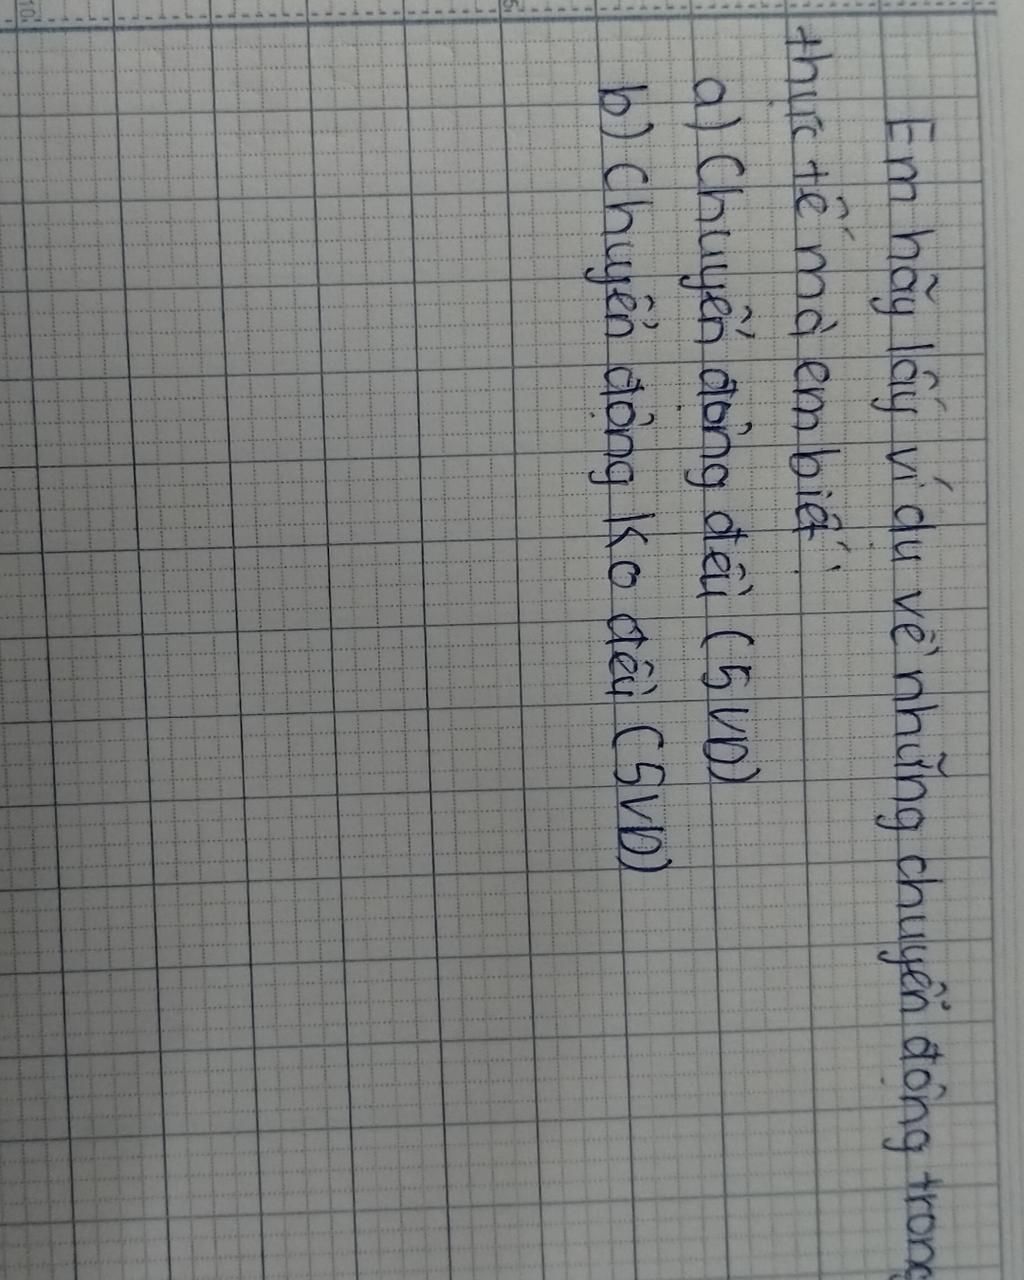 Em hãy lấy ví dụ về những chuyển động trong
thực tế mà em biết:
a) Chuyển động đều (5 VD)
b) Chuyển động ko đều (5 VD)